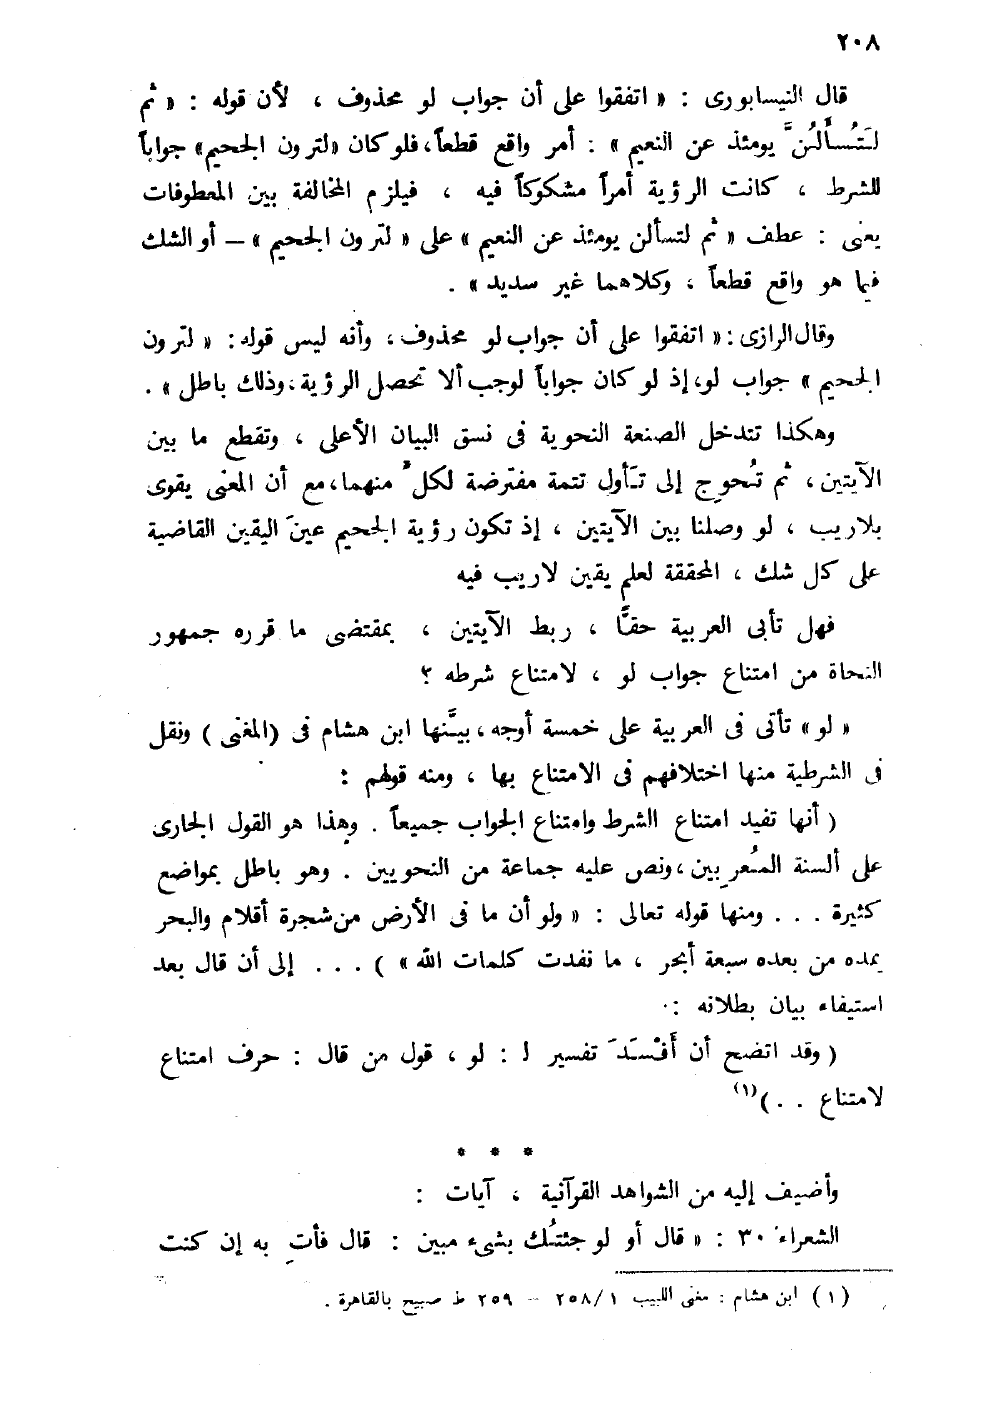 ٢٠٨
قال النيسابورى : « اتفقوا على أن جواب لو محذوف ، لأن قوله : « ثم
لَتُسأَلُنَّ يومئذ عن النعيم » : أمر واقع قطعاً، فلو كان «لترون الجحيم» جواباً
للشرط ، كانت الرؤية أمراً مشكوكاً فيه ، فيلزم المخالفة بين المعطوفات
يعنى : عطف « ثم لتسألن يومئذ عن النعيم » على « لترون الجحيم » — أو الشك
فيما هو واقع قطعاً ، وكلاهما غير سديد » .
وقال الرازى : « اتفقوا على أن جواب لو محذوف ، وأنه ليس قوله : « لترون
الجحيم » جواب لو، إذ لو كان جواباً لوجب ألا تحصل الرؤية ، وذلك باطل » .
وهكذا تتدخل الصنعة النحوية فى نسق البيان الأعلى ، وتقطع ما بين
الآيتين ، ثم تُحوِج إلى تَأول تتمة مفترضة لكلٍّ منهما ، مع أن المعنى يقوى
بلاريب ، لو وصلنا بين الآيتين ، إذ تكون رؤية الجحيم عينَ اليقين القاضية
على كل شك ، المحققة لعلم يقين لاريب فيه
فهل تأبى العربية حقًّا ، ربط الآيتين ، بمقتضى ما قرره جمهور
النحاة من امتناع جواب لو ، لامتناع شرطه ؟
« لو » تأتى فى العربية على خمسة أوجه ، بيَّنها ابن هشام فى (المغنى) ونقل
فى الشرطية منها اختلافهم فى الامتناع بها ، ومنه قولهم :
( أنها تفيد امتناع الشرط وامتناع الجواب جميعاً . وهذا هو القول الجارى
على ألسنة المُعرِبين ، ونص عليه جماعة من النحويين . وهو باطل بمواضع
كثيرة . . . ومنها قوله تعالى : « ولو أن ما فى الأرض من شجرة أقلام والبحر
يمده من بعده سبعة أبحر ، ما نفدت كلمات الله » ) . . . إلى أن قال بعد
استيفاء بيان بطلانه :
( وقد اتضح أن أَفْسَدَ تفسير لـ : لو ، قول من قال : حرف امتناع
لامتناع . . )(١)
* * *
وأضيف إليه من الشواهد القرآنية ، آيات :
الشعراء ٣٠ : « قال أو لو جئتُك بشىء مبين : قال فأتِ به إن كنت
(١) ابن هشام : مغنى اللبيب ١/٢٥٨ – ٢٥٩ ط صبيح بالقاهرة .